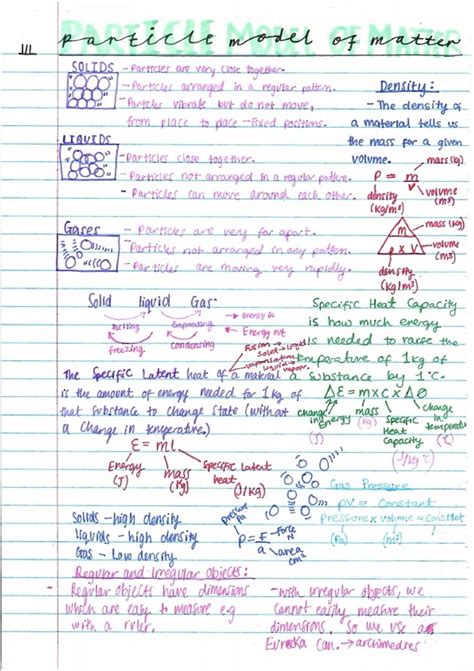 particle model of matter
SOLIDS - Particles are very close together.
- Particles arranged in a regular pattern.
- Particles vibrate but do not move,
from place to place - Fixed positions.
Density:
- The density of
a material tells us
the mass for a given
volume.
mass (kg)
ρ = m
v
volume
(m³)
density
(kg/m³)
m
ρ x V
mass (kg)
volume
(m³)
density
(kg/m³)
LIQUIDS
- Particles close together.
- Particles not arranged in a regular pattern.
- Particles can move around each other.
Gases
- Particles are very far apart.
- Particles not arranged in any pattern.
- Particles are moving very rapidly.
Solid liquid Gas
melting
Evaporating
Energy in
Energy out
freezing
condensing
Specific Heat Capacity
is how much energy
is needed to raise the
temperature of 1kg of
a substance by 1°C.
Fusion
Solid → liquid
vaporisation
liquid → vapour
The Specific Latent heat of a material
is the amount of energy needed for 1kg of
that substance to change state (without
a change in temperature).
ΔE = m x c x Δθ
change
in
Energy
(J)
mass
(kg)
Specific
Heat
Capacity
(J/kg°C)
change
in temperature
E = ml
Energy
(J)
mass
(kg)
Specific latent
heat
(J/kg)
Gas Pressure
pV = Constant
Pressure x volume = constant
(Pa) (m³)
Solids - high density
liquids - high density
Gas - Low density
Pressure
Pa
p = F
A
Force
N
area
cm²
Regular and Irregular objects:
Regular objects have dimensions
which are easy to measure e.g
with a ruler.
- with irregular objects, we
cannot easily measure their
dimensions. So we use a
Eureka can. → archimedres